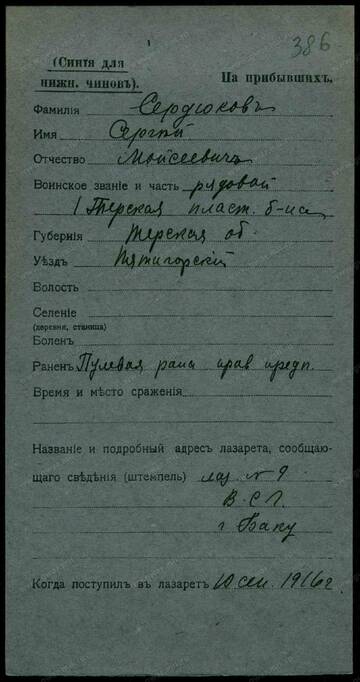 386
(Синія для
нижн. чиновъ).
На прибывшихъ.
Фамилія Сердюковъ
Имя Сергѣй
Отчество Мойсеевичъ
Воинское званіе и часть рядовой
1 Терская пласт. б-ца
Губернія Терская об.
Уѣздъ Пятигорскій
Волость
Селеніе
(деревня, станица)
Боленъ
Раненъ Пулевая рана прав предп.
Время и мѣсто сраженія
Названіе и подробный адресъ лазарета, сообщаю-
щаго свѣдѣнія (штемпель) лаз. N 9
В.С.Г.
г Баку
Когда поступилъ въ лазаретъ 10 сен. 1916 г